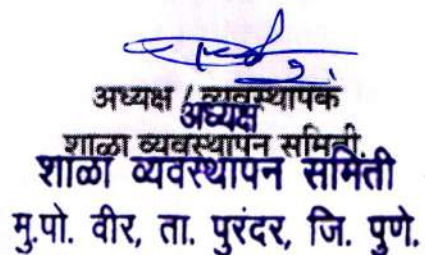 अध्यक्ष / व्यवस्थापक
अध्यक्ष
शाळा व्यवस्थापन समिती
शाळा व्यवस्थापन समिती
मु.पो. वीर, ता. पुरंदर, जि. पुणे.